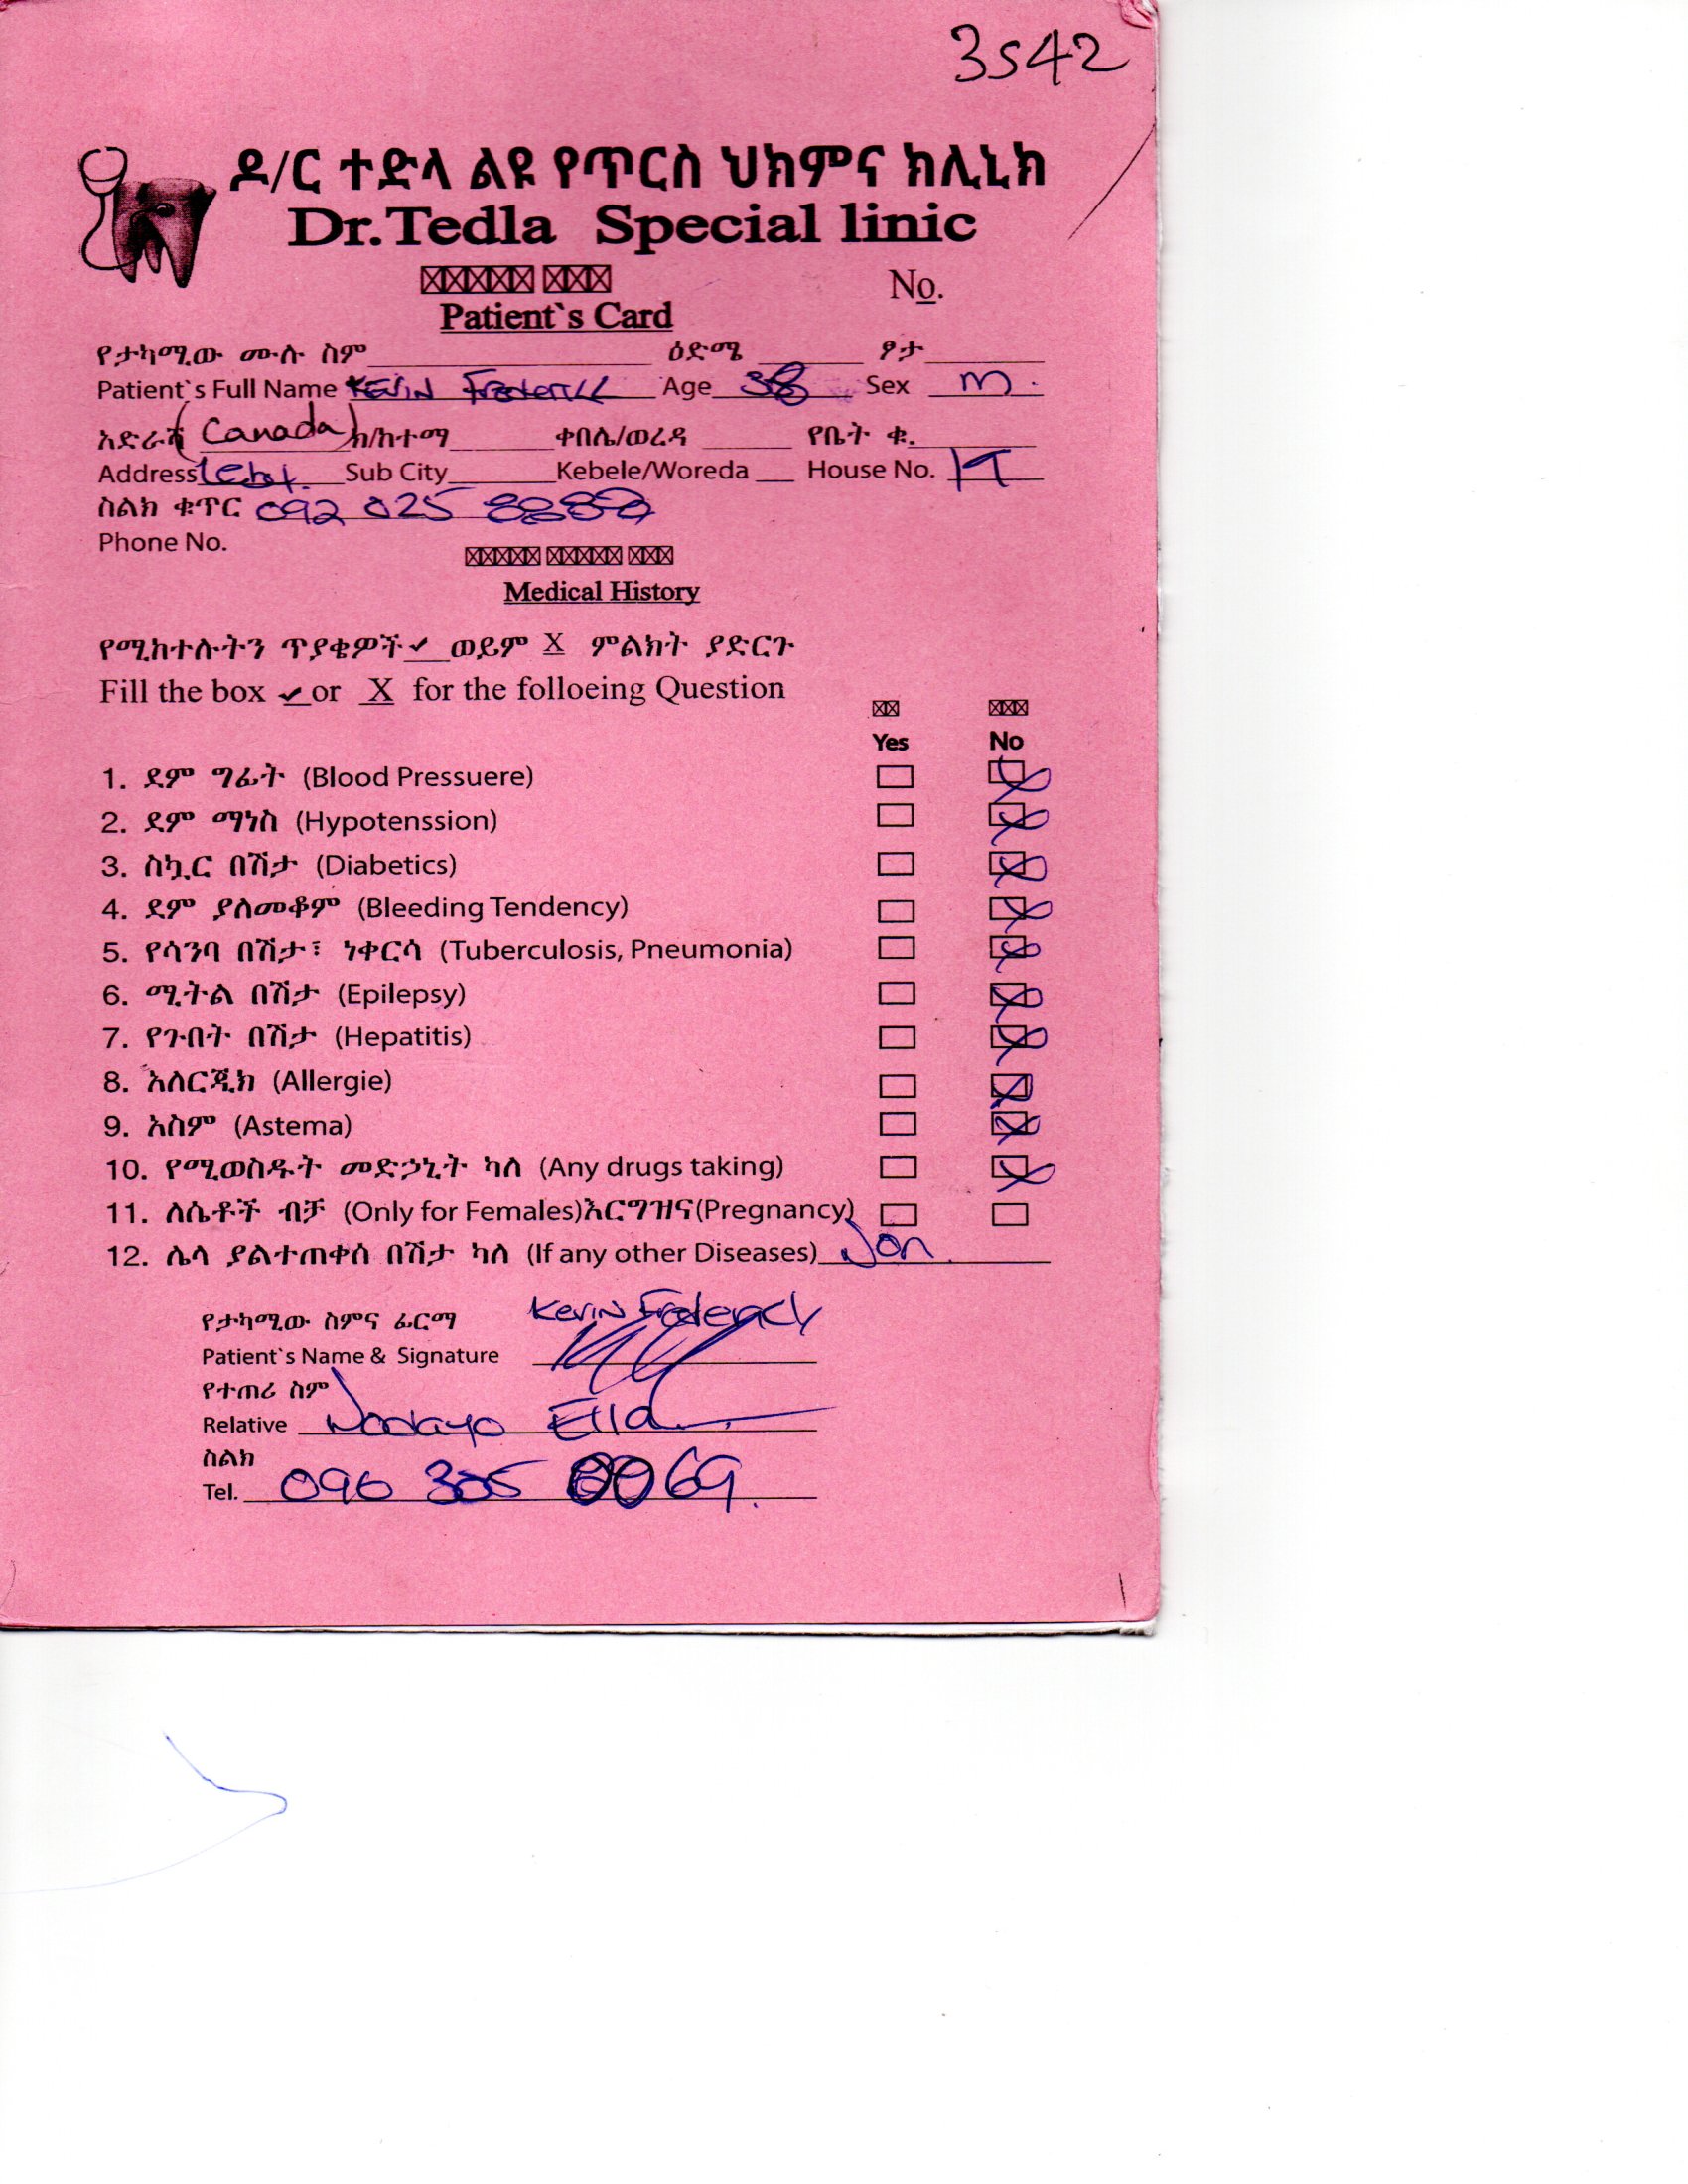 3542
ዶ/ር ተድላ ልዩ የጥርስ ህክምና ክሊኒክ
Dr.Tedla Special linic
No.
Patient`s Card
የታካሚው ሙሉ ስም ዕድሜ ፆታ
Patient`s Full Name Kevin Age 38 Sex m.
አድራሻ (Canada) ክ/ከተማ ቀበሌ/ወረዳ የቤት ቁ.
Address Sub City Kebele/Woreda House No.
ስልክ ቁጥር 092 025
Phone No.
Medical History
የሚከተሉትን ጥያቄዎች ✓ ወይም X ምልክት ያድርጉ
Fill the box ✓ or X for the folloeing Question
Yes No
1. ደም ግፊት (Blood Pressuere)
2. ደም ማነስ (Hypotenssion)
3. ስኳር በሽታ (Diabetics)
4. ደም ያለመቆም (Bleeding Tendency)
5. የሳንባ በሽታ፣ ነቀርሳ (Tuberculosis, Pneumonia)
6. ሚትል በሽታ (Epilepsy)
7. የጉበት በሽታ (Hepatitis)
8. አለርጂክ (Allergie)
9. አስም (Astema)
10. የሚወስዱት መድኃኒት ካለ (Any drugs taking)
11. ለሴቶች ብቻ (Only for Females)እርግዝና(Pregnancy)
12. ሌላ ያልተጠቀሰ በሽታ ካለ (If any other Diseases) Non.
የታካሚው ስምና ፊርማ Kevin
Patient`s Name & Signature
የተጠሪ ስም
Relative Ella
ስልክ
Tel. 096 305 0069.